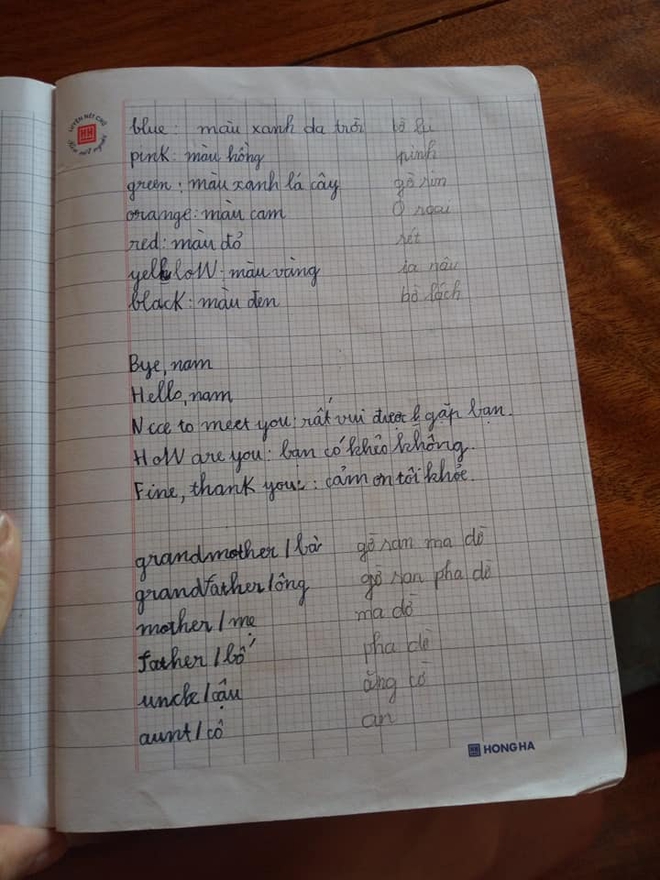 blue: màu xanh da trời bờ lu
pink: màu hồng pinh
green: màu xanh lá cây gờ rin
orange: màu cam O rqai
red: màu đỏ rét
yellow: màu vàng ia râu
black: màu đen bờ lách
Bye, nam
Hello, nam
Nice to meet you: rất vui được gặp bạn.
HoW are you: bạn có khẻo không.
Fine, thank you: cảm ơn tôi khỏe.
grandmother / bà gờ ran ma dờ
grandfather / ông gờ ran pha dờ
mother / mẹ ma dờ
father / bố pha dờ
uncle / cậu ăng cồ
aunt / cô an
HONG HA